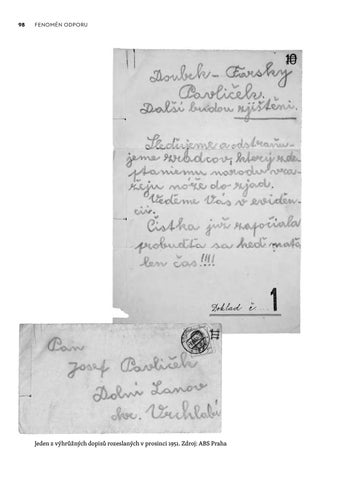 98 FENOMÉN ODPORU
10
Doubek - Farsky
Pavlíček.
Další budou zjištěni.
Sledujeme a odstraňu-
jeme zradcov, ktorý zde
ptaniemu narodu vra-
žeju nože do zjad.
Vedeme Vás v eviden-
cii.
Čistka již započala
probudťa sa keď máťe
len čas!!!!
Doklad č... 1
Pan
Josef Pavlíček
Dolní Lanov
okr. Vrchlabí
Jeden z výhrůžných dopisů rozeslaných v prosinci 1951. Zdroj: ABS Praha